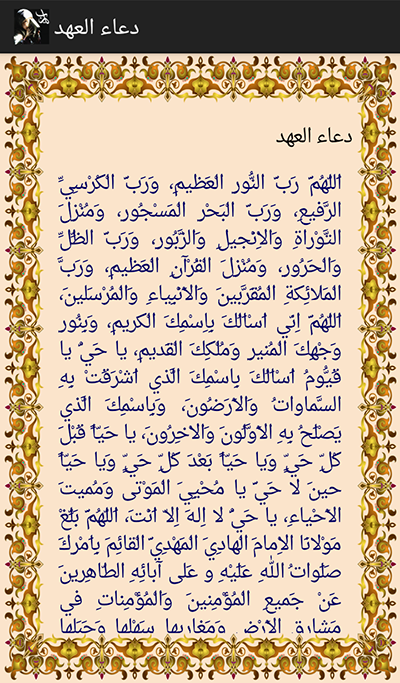 دعاء العهد
دعاء العهد
اَللّهُمَّ رَبَّ النُّورِ الْعَظيمِ، وَرَبَّ الْكُرْسِيِّ
الرَّفيعِ، وَرَبَّ الْبَحْرِ الْمَسْجُورِ، وَمُنْزِلَ
التَّوْراةِ وَالاِْنْجيلِ وَالزَّبُورِ، وَرَبَّ الظِّلِّ
وَالْحَرُورِ، وَمُنْزِلَ الْقُرْآنِ الْعَظيمِ، وَرَبَّ
الْمَلائِكَةِ الْمُقَرَّبينَ وَالاَْنْبِياءِ وَالْمُرْسَلينَ،
اَللّهُمَّ اِنّي اَسْاَلُكَ بِاِسْمِكَ الْكَريمِ، وَبِنُورِ
وَجْهِكَ الْمُنيرِ وَمُلْكِكَ الْقَديمِ، يا حَيُّ يا
قَيُّومُ اَسْاَلُكَ بِاسْمِكَ الَّذي اَشْرَقَتْ بِهِ
السَّماواتُ وَالاَْرَضُونَ، وَبِاسْمِكَ الَّذي
يَصْلَحُ بِهِ الاَْوَّلُونَ وَالاْخِرُونَ، يا حَيّاً قَبْلَ
كُلِّ حَيٍّ وَيا حَيّاً بَعْدَ كُلِّ حَيٍّ وَيا حَيّاً
حينَ لا حَيَّ يا مُحْيِيَ الْمَوْتى وَمُميتَ
الاَْحْياءِ، يا حَيُّ لا اِلهَ اِلاّ اَنْتَ، اَللّهُمَّ بَلِّغْ
مَوْلانَا الاِْمامَ الْهادِيَ الْمَهْدِيَّ الْقائِمَ بِاَمْرِكَ
صَلَواتُ اللهِ عَلَيْهِ و عَلى آبائِهِ الطّاهِرينَ
عَنْ جَميعِ الْمُؤْمِنينَ وَالْمُؤْمِناتِ في
مَشارِقِ الاَْرْضِ وَمَغارِبِها سَهْلِها وَجَبَلِها